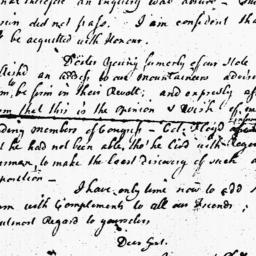 an Enquiry was
did not pass. I am confident tha
be acquitted with Honour.
Doctor Young formerly of our State
an address to our mountaineers
be firm in their Revolt; and expressly
that this is the opinion & Wish of
members of Congress – Col. Floyd
he had not been able, tho' he lived with Roger
Sherman, to make the least discovery of such a
position –
I have only time now to add
with Complements to all our Friends;
utmost Regard to yourselves
Dear Gent.